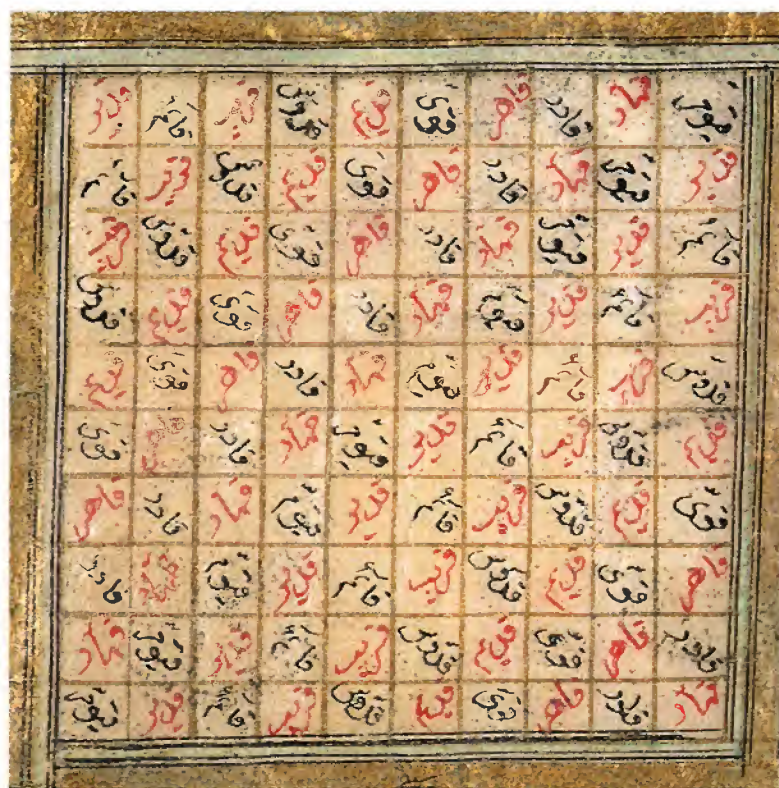 قيوم قهار قادر قاهر قوى قديم قدوس قريب قائم قدير
قدير قيوم قهار قادر قاهر قوى قديم قدوس قريب قائم
قائم قدير قيوم قهار قادر قاهر قوى قديم قدوس قريب
قريب قائم قدير قيوم قهار قادر قاهر قوى قديم قدوس
قدوس قريب قائم قدير قيوم قهار قادر قاهر قوى قديم
قديم قدوس قريب قائم قدير قيوم قهار قادر قاهر قوى
قوى قديم قدوس قريب قائم قدير قيوم قهار قادر قاهر
قاهر قوى قديم قدوس قريب قائم قدير قيوم قهار قادر
قادر قاهر قوى قديم قدوس قريب قائم قدير قيوم قهار
قهار قادر قاهر قوى قديم قدوس قريب قائم قدير قيوم